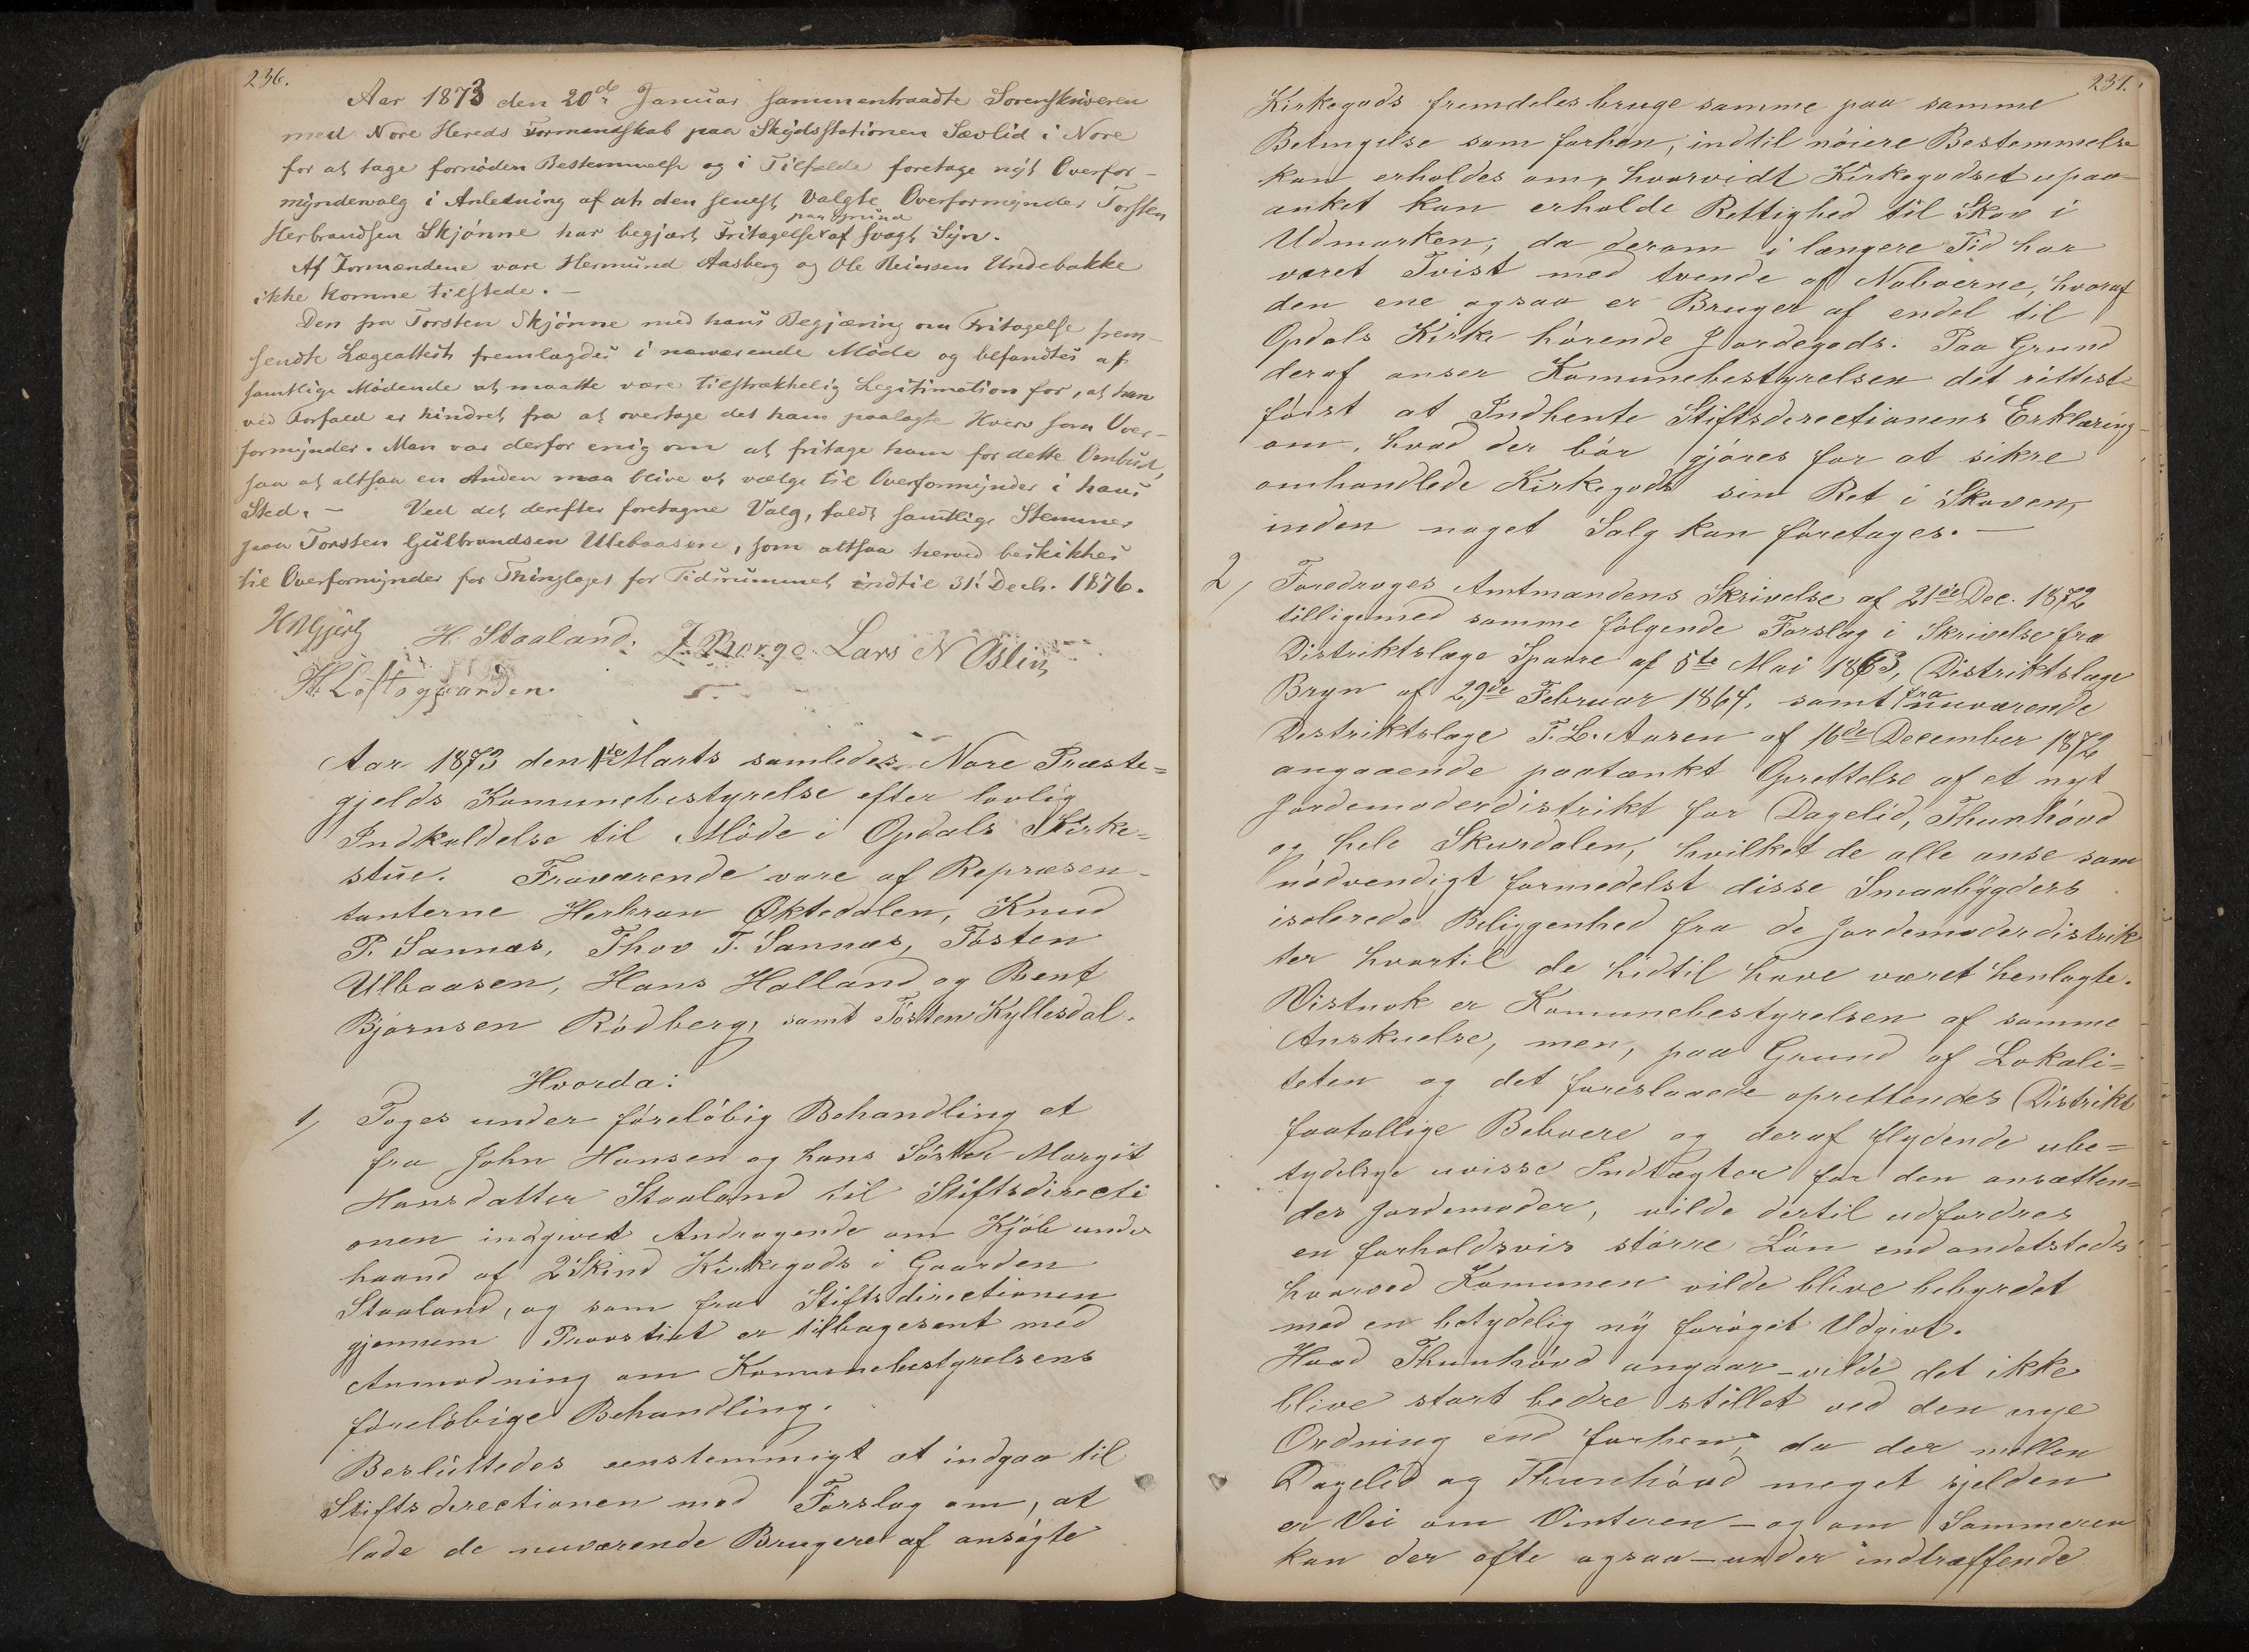 236.
Aar 1873 den 20de Januar sammentraadte Sorenskriveren
med Nore Hereds Formandskab paa Skydsstationen Sævlid i Nore
for at tage fornöden Bestemmelse og i Tilfælde foretage nyt Overfor-
myndervalg i Anledning af at den senest valgte Overformynder Torsten
paa Grund
Herbrandsen Skjönne har begjært Fritagelse af svagt Syn.
Af Formændene vare Hermund Aasberg og Ole Reiersen Undebakke
ikke komne tilstede. —
Den fra Torsten Skjönne med hans Begjæring om Fritagelse frem-
sendte Lægeattest fremlagdes i nærværende Möde og befandtes af
samtlige Mödende at maatte være tilstrækkelig Legitimation for, at han
ved Forfald er hindret fra at overtage det ham paalagte Hverv som Over-
formynder. Man var derfor enig om at fritage ham for dette Ombud,
saa at altsaa en Anden maa blive at vælge til Overformynder i hans
Sted. — Ved det derefter foretagne Valg, faldt samtlige Stemmer
paa Torsten Gulbrandsen Ulebaasen, som altsaa herved beskikkes
til Overformynder for Thinglaget for Tidsrummet indtil 31. Decb. 1876.
H. Staaland. J. Borge. Lars N Öslin
H. Löftsgaarden.
Aar 1873 den 1ste Marts samledes Nore Præste=
gjelds Komunebestyrelse efter lovlig
Indkaldelse til Möde i Opdals Kirke=
stue. Fraværende vare af Repræsen-
tanterne Herbran Öktedalen, Knud
P. Sannæs, Thov T. Sannæs, Tösten
Ulbaasen, Hans Halland og Bent
Bjørnsen Rödberg, samt Tösten Kyllesdal.
Hvorda:
1/ Toges under föreløbig Behandling et
fra John Hansen og hans Söster Margit
Hansdatter Staaland til Stiftsdirecti
onen indgivet Andragende om Kjöb under
haand af 2 Skind Kirkegods i Gaarden
Staaland, og som fra Stiftsdirectionen
gjennem Provstiet er tilbagesent med
Anmodning om Komunebestyrelsens
föreløbige Behandling.
Besluttedes eenstemmigt at indgaa til
Stiftsdirectionen med Forslag om, at
lade de nuværende Brugere af ansögte
237.
Kirkegods fremdeles bruge samme paa samme
Betingelse som forhen, indtil nöiere Bestemmelse
kan erholdes om, hvorvidt Kirkegodset upaa-
anket kan erholde Rettighed til Skov i
Udmarken, da derom i længere Tid har
været Tvist med tvende af Naboerne, hvoraf
den ene ogsaa er Bruger af endel til
Opdals Kirke hörende Jordegods. Paa Grund
deraf anser Komunebestyrelsen det rettest
först at Indhente Stiftsdirectionens Erklæring
om, hvad der bör gjöres for at sikre
omhandlede Kirkegods sin Ret i Skoven,
inden noget Salg kan företages. —
2/ Foredroges Amtmandens Skrivelse af 21de Dec. 1872
tilligemed samme fölgende Forslag i Skrivelse fra
Distriktslæge Sparre af 5te Mai 1863, Distriktslæge
Bryn af 29de Februar 1864, samt fra nuværende
Distriktslæge T. L. Aaren af 16de December 1872
angaaende paatænkt Oprettelse af et nyt
Jordemoderdistrikt for Dagelid, Thunhövd
og hele Skurdalen, hvilket de alle anse som
nödvendigt formedelst disse Smaabygders
isolerede Beliggenhed fra de Jordemoderdistrik
ter hvortil de hidtil have været henlagte.
Vistnok er Komunebestyrelsen af samme
Anskuelse, men, paa Grund af Lokali=
teten og det foreslaaede oprettendes Distrikt
faatallige Beboere og deraf flydende ube=
tydelige uvisse Indtægter for den ansætten=
des Jordemoder, vilde dertil udfordres
en forholdsvis större Lön end andetsteds
hvorved Komunen vilde blive bebyrdet
med en betydelig ny foröget Udgivt.
Hvad Thunhövd angaar – vilde det ikke
blive stort bedre stillet ved den nye
Ordning end forhen, da der mellem
Dagelid og Thunhövd meget sjelden
er Vei om Vinteren – og om Sommeren
kan der ofte ogsaa – under indtræffende